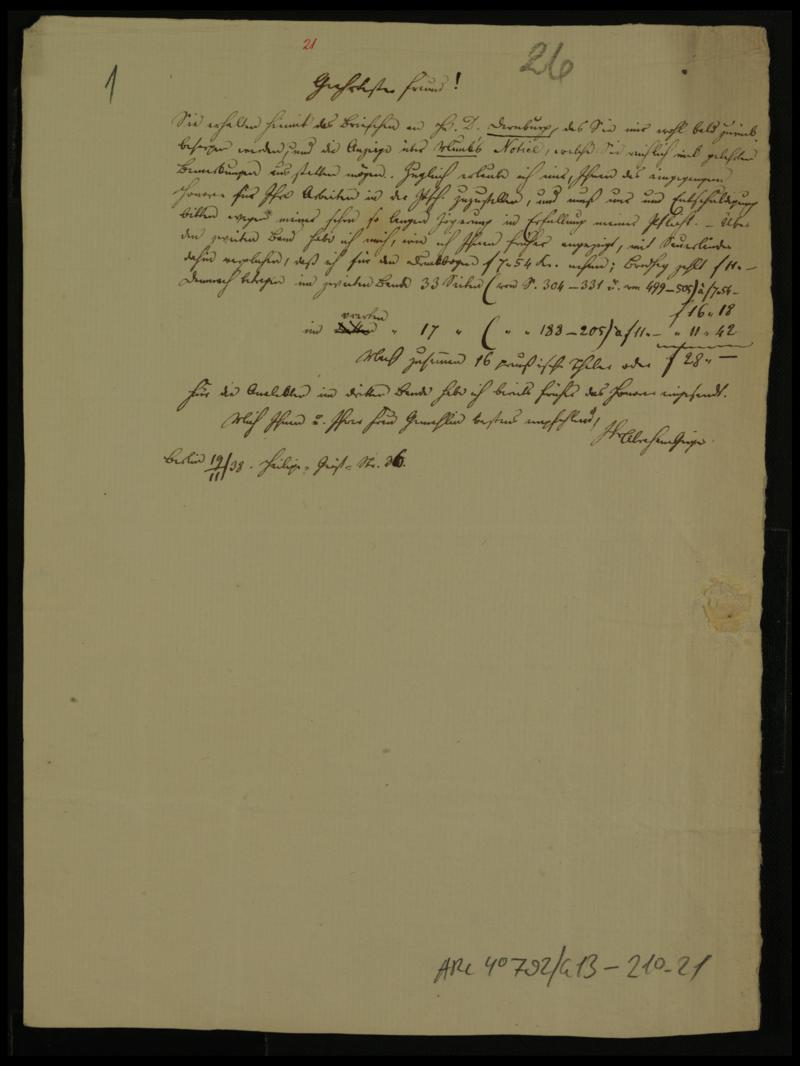 21
26
1
Geehrtester Freund!
Sie erhalten hiemit das Briefchen an H. D. Dernburg, das Sie mir wohl bald zurück
besorgen werden, und die Anzeige über Munk's Notice, welche Sie reichlich mit gelehrten
Bemerkungen ausstatten mögen. Zugleich erlaube ich mir, Ihnen das eingegangene
Honorar für Ihre Arbeiten in der Ztsch. zuzustellen, und muß nur um Entschuldigung
bitten wegen meiner schon so langen Zögerung in Erfüllung meiner Pflicht. – Über
den zweiten Band habe ich mich, wie ich Ihnen früher angezeigt, mit Sauerländer
dahin verglichen, daß ich für den Druckbogen f 7. 54 kr. nehme; Brodhag zahlt f 11. –
Demnach betragen im zweiten Bande 33 Seiten (von S. 304 – 331 u. von 499 – 505) à f 7. 54 –
f 16 " 18
im vierten " 17 " ( " " 188 – 205) à f 11. – " 11 " 42
Macht zusammen 16 preußische Thaler oder f 28 " –
Für die Analekten im dritten Bande habe ich bereits früher das Honorar eingesandt.
Mich Ihnen u. Ihrer Frau Gemahlin bestens empfehlend,
Ihr Abraham Geiger.
Berlin 19/11/38. Heilige-Geist-Str. 36.
ARc 4° 792/G13 – 210-21